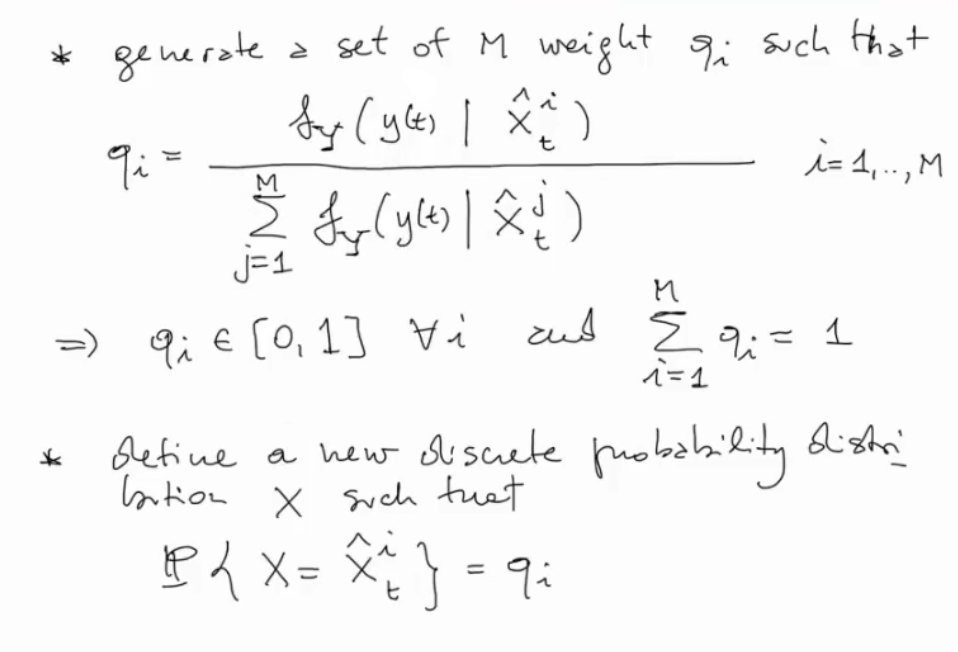 * generate a set of M weight qᵢ such that
qᵢ = f_y(y(t) | x̂ₜⁱ) / ∑_{j=1}^{M} f_y(y(t) | x̂ₜʲ)    i=1,..,M
⇒ qᵢ ∈ [0,1] ∀i and ∑_{i=1}^{M} qᵢ = 1
* define a new discrete probability distri
bution X such that
ℙ{ X = x̂ₜⁱ } = qᵢ